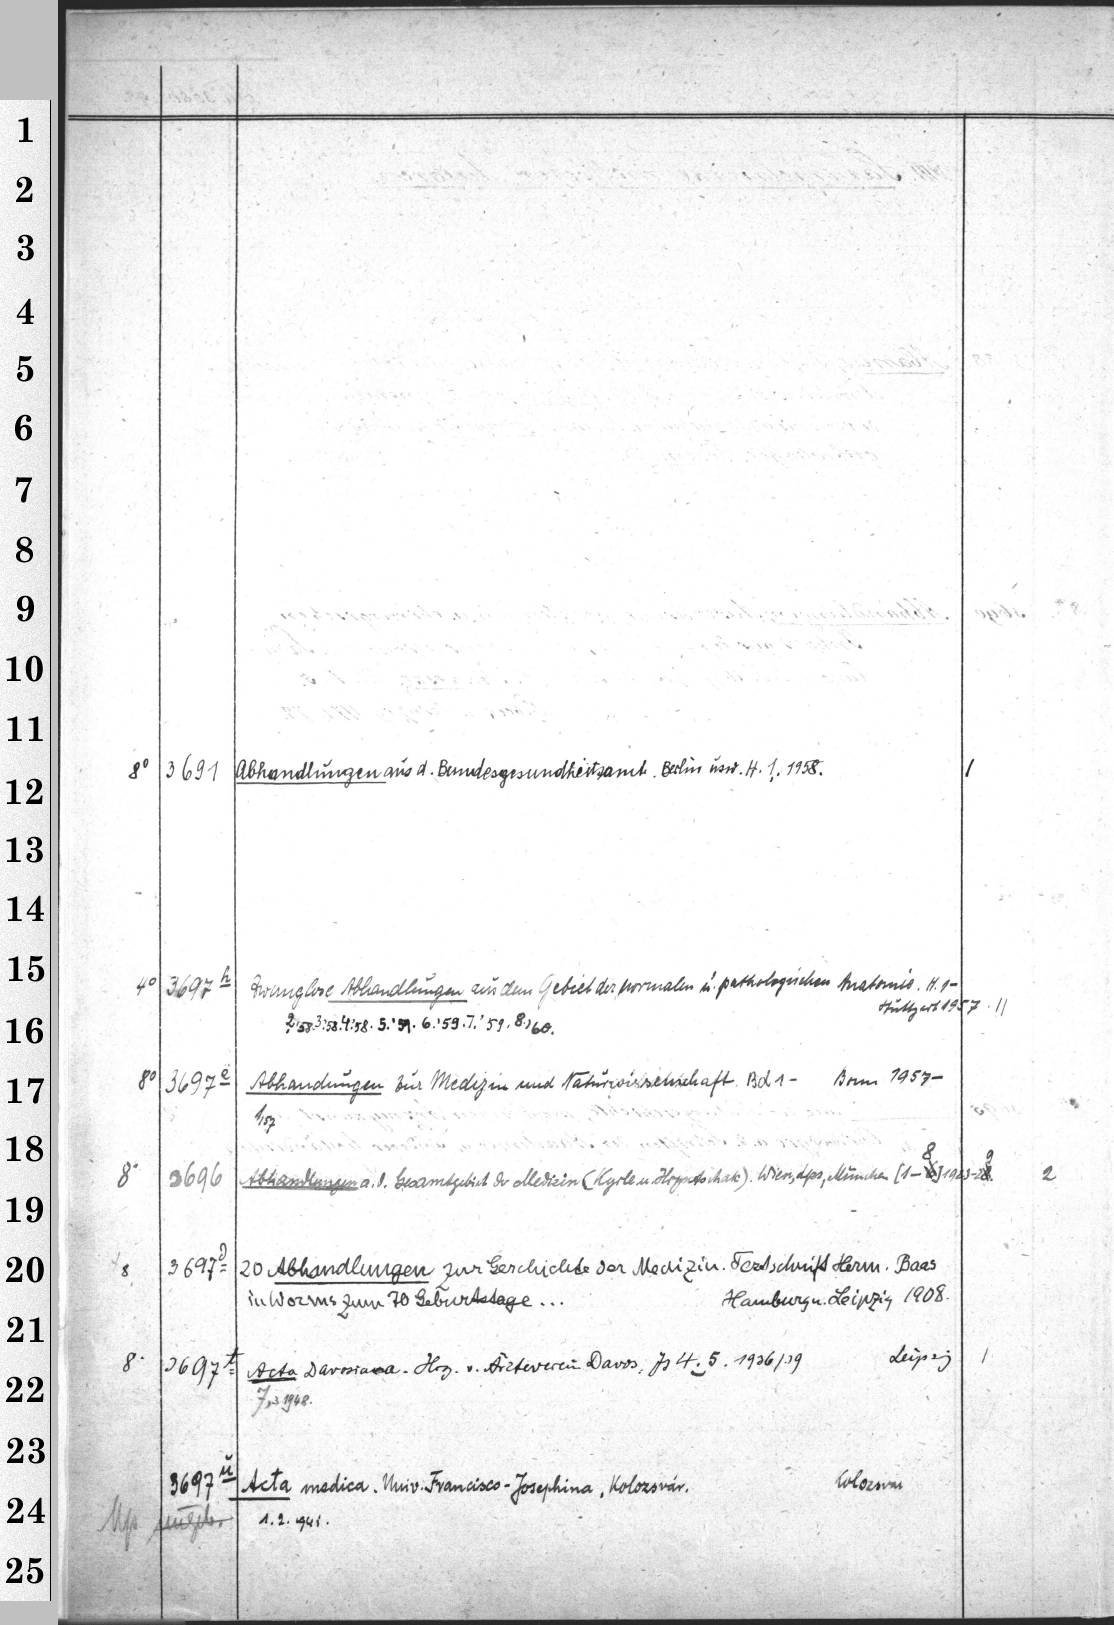 1
2
3
4
5
6
7
8
9
10
11
12
13
14
15
16
17
18
19
20
21
22
23
24
25
8° 3691 Abhandlungen aus d. Bundesgesundheitsamt. Berlin usw. H. 1. 1958. 1
4° 3697 h Zwanglose Abhandlungen aus dem Gebiet der normalen u. pathologischen Anatomie. H. 1-
Stuttgart 1957
2,'58. 3,'58. 4,'58. 5,'59. 6,'59. 7,'59, 8,'60.
8° 3697 e Abhandungen zur Medizin und Naturwissenschaft. Bd 1- Bonn 1957-
1/57
8° 3696 Abhandlungen a. d. Gesamtgebiet der Medizin (Kyrle u. Hryntschak). Wien, Lpz, München [1-8] 1923-29. 2
8 3697 d 20 Abhandlungen zur Geschichte der Medizin. Festschrift Herm. Baas
in Worms zum 70 Geburtstage ... Hamburg u. Leipzig 1908.
8° 3697 t Acta Davosiana. Hrg. v. Ärzteverein Davos, Jg 4. 5. 1936/39 Leipzig 1
7, 1948.
3697 u Acta medica. Univ. Francisco-Josephina, Kolozsvár. Kolozsvar
1. 2. 1941.